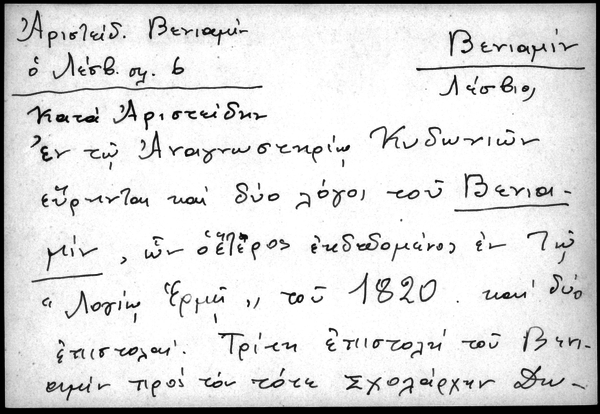 Ἀριστείδ. Βενιαμὶν
ὁ Λέσβ. σλ. 6
Βενιαμίν
Λέσβιος
κατὰ Ἀριστείδην
Ἐν τῷ Ἀναγνωστηρίῳ Κυδωνιῶν
εὕρηνται καὶ δύο λόγοι τοῦ Βενια-
μίν, ὧν ὁ ἕτερος ἐκδεδομένος ἐν τῷ
"Λογίῳ Ἑρμῇ" τοῦ 1820. καὶ δύο
ἐπιστολαί. Τρίτη ἐπιστολὴ τοῦ Βενι-
αμὶν πρὸς τὸν τότε Σχολάρχην